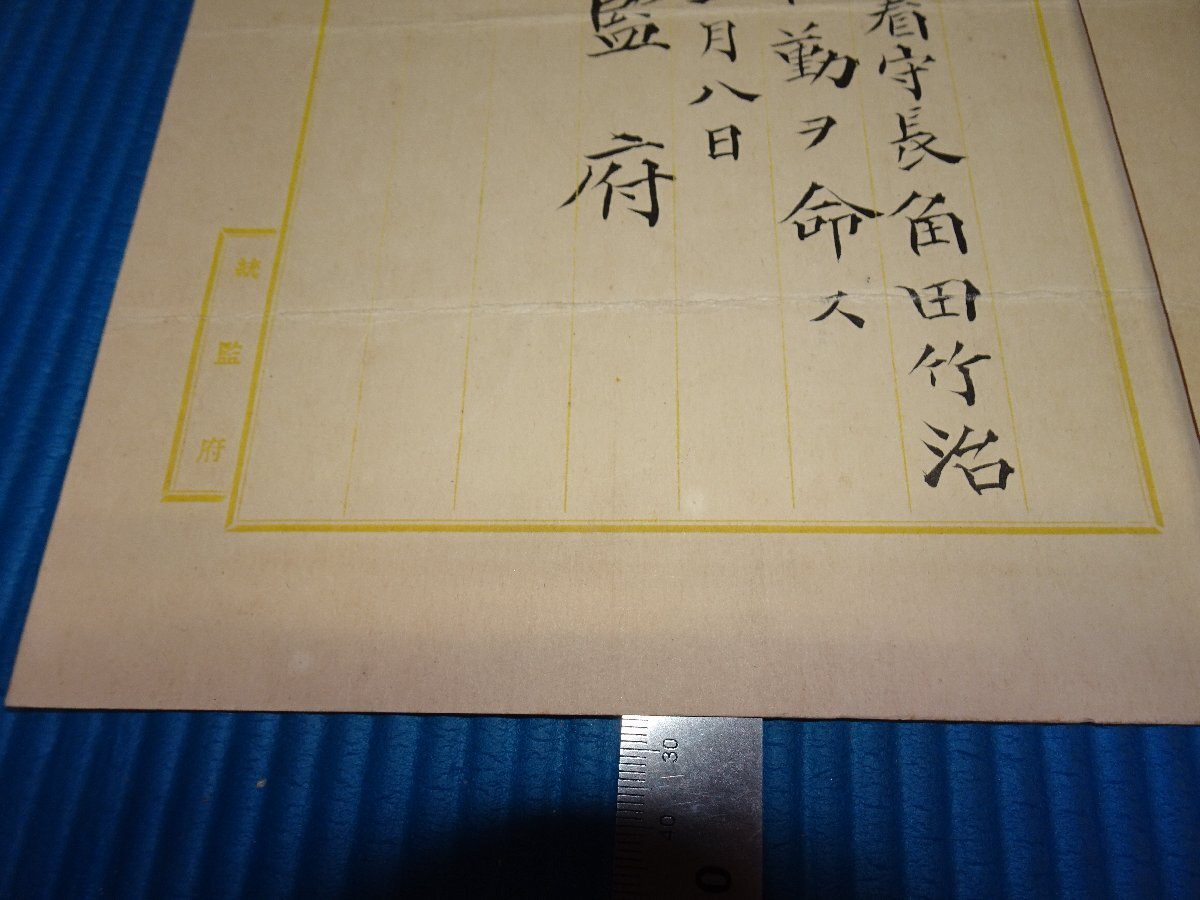 看守長角田竹治
勤ヲ命ス
月八日
監府
統監府
30
40